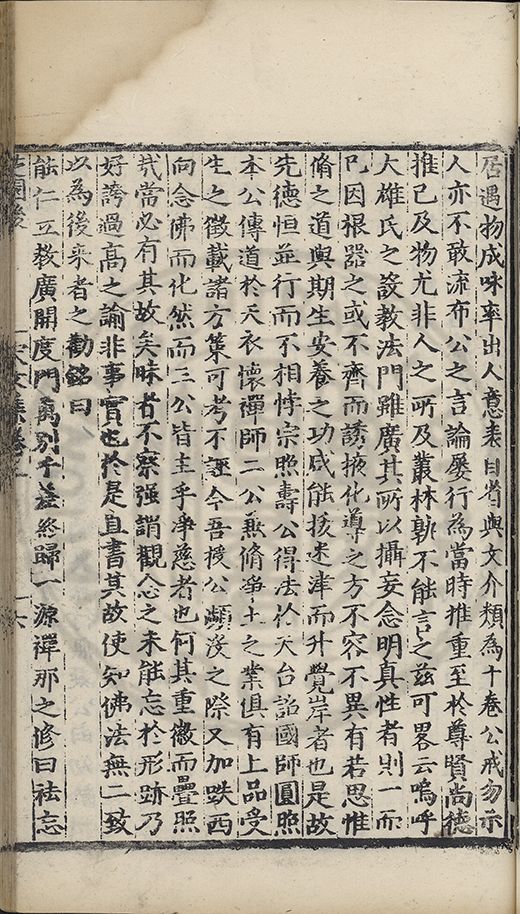 居遇物成咏率出人意表目者與文介類為十卷公戒勿示
人亦不敢流布公之言論屢行為當時推重至於尊賢尚德
推己及物尤非人之所及叢林孰不能言之茲可畧云嗚呼
大雄氏之設教法門雖廣其所以攝妄念明真性者則一而
已因根器之或不齊而誘掖化導之方不容不異有若思惟
脩之道與期生安養之功咸能援迷津而升覺岸者也是故
先德恒並行而不相悖宗照壽公得法於天台詔國師圓照
本公傳道於天衣懷禪師二公兼脩淨土之業俱有上品受
生之徵載諸方策可考不誣今吾授公顛沒之際又加趺西
向念佛而化然而三公皆主乎淨慈者也何其重徽而疊照
哉當必有其故矣昧者不察强謂觀念之未能忘於形跡乃
好誇過高之論非事實也於是直書其故使知佛法無二致
以為後来者之勸銘曰
能仁立教廣開度門萬别千差終歸一源禪那之修曰袪忘